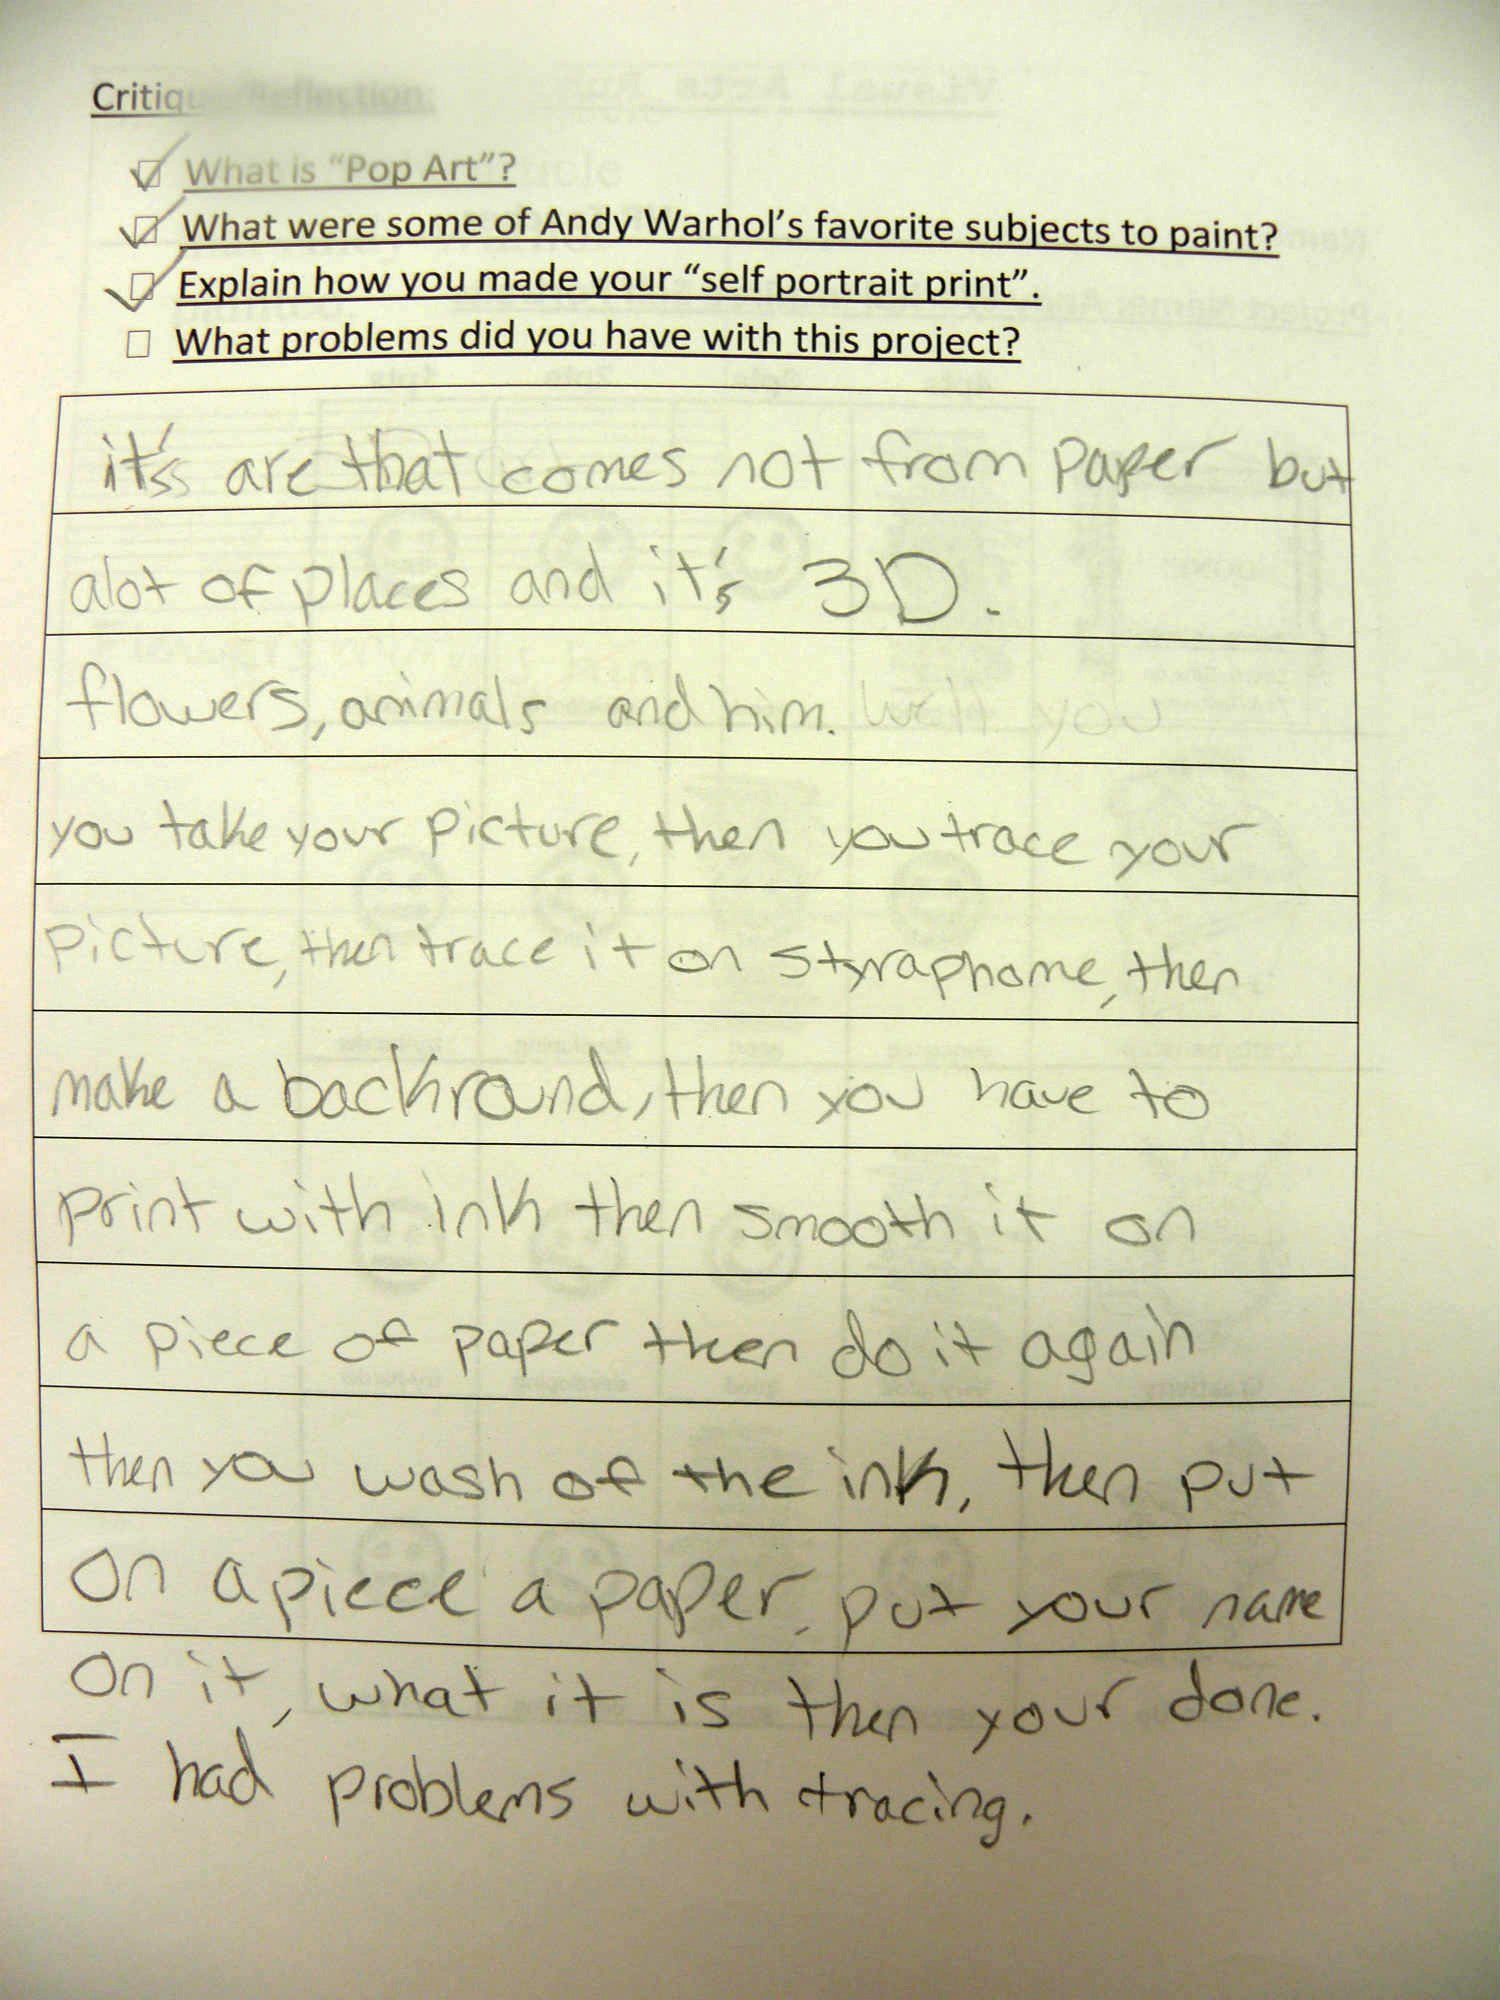 Critique/Reflection:
☑ What is “Pop Art”?
☑ What were some of Andy Warhol’s favorite subjects to paint?
☑ Explain how you made your “self portrait print”.
☐ What problems did you have with this project?
it's are that comes not from paper but
alot of places and it's 3D.
flowers, animals and him. Well you
you take your picture, then you trace your
picture, then trace it on styraphome, then
make a backround, then you have to
print with ink then smooth it on
a piece of paper then do it again
then you wash of the ink, then put
on a piece a paper, put your name
on it, what it is then your done.
I had problems with tracing.